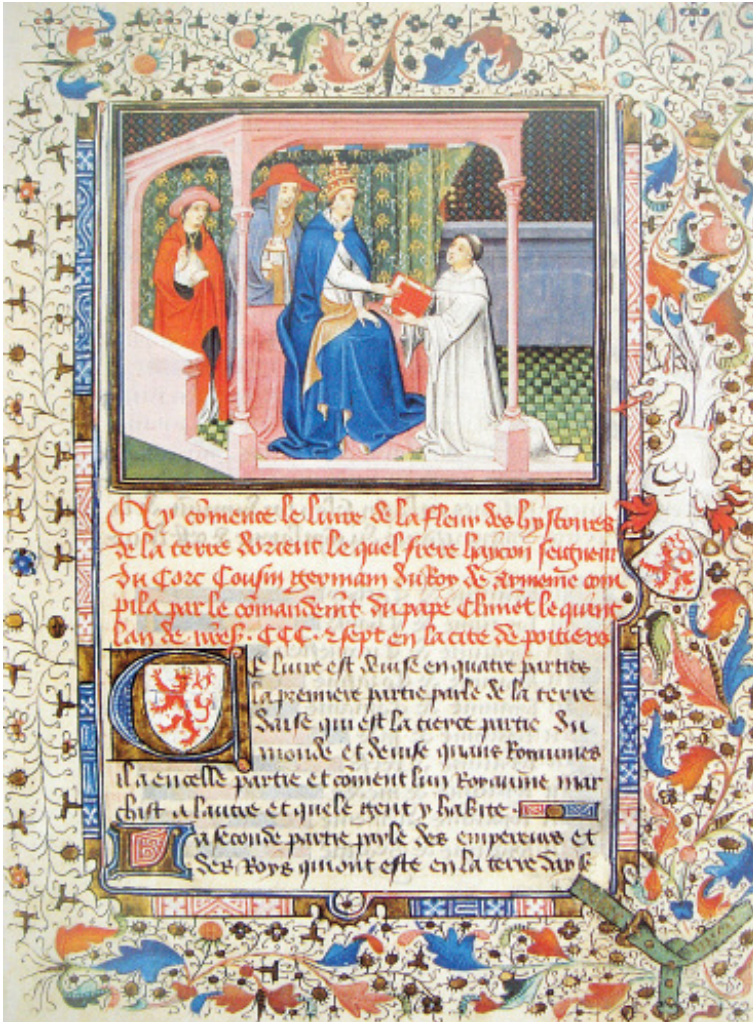 Cy cōmence le liure de la fleur des hystoires
de la terre dorient le quel frere hayton seigneur
du Corc Cousin germain du Roy de Armenie com
pila par le comandemt du pape Climēt le quint
lan de CCC · sept en la cite de poitiers
Ce liure est deuise en quatre parties
la premiere partie parle de la terre
dasie qui est la tierce partie du
monde et deuise quans Royaumes
il a en celle partie et cōment lun Royaume mar
chist a lautre et quele gent y habite ·
La seconde partie parle des empereurs et
des Roys qui ont este en la terre dasye